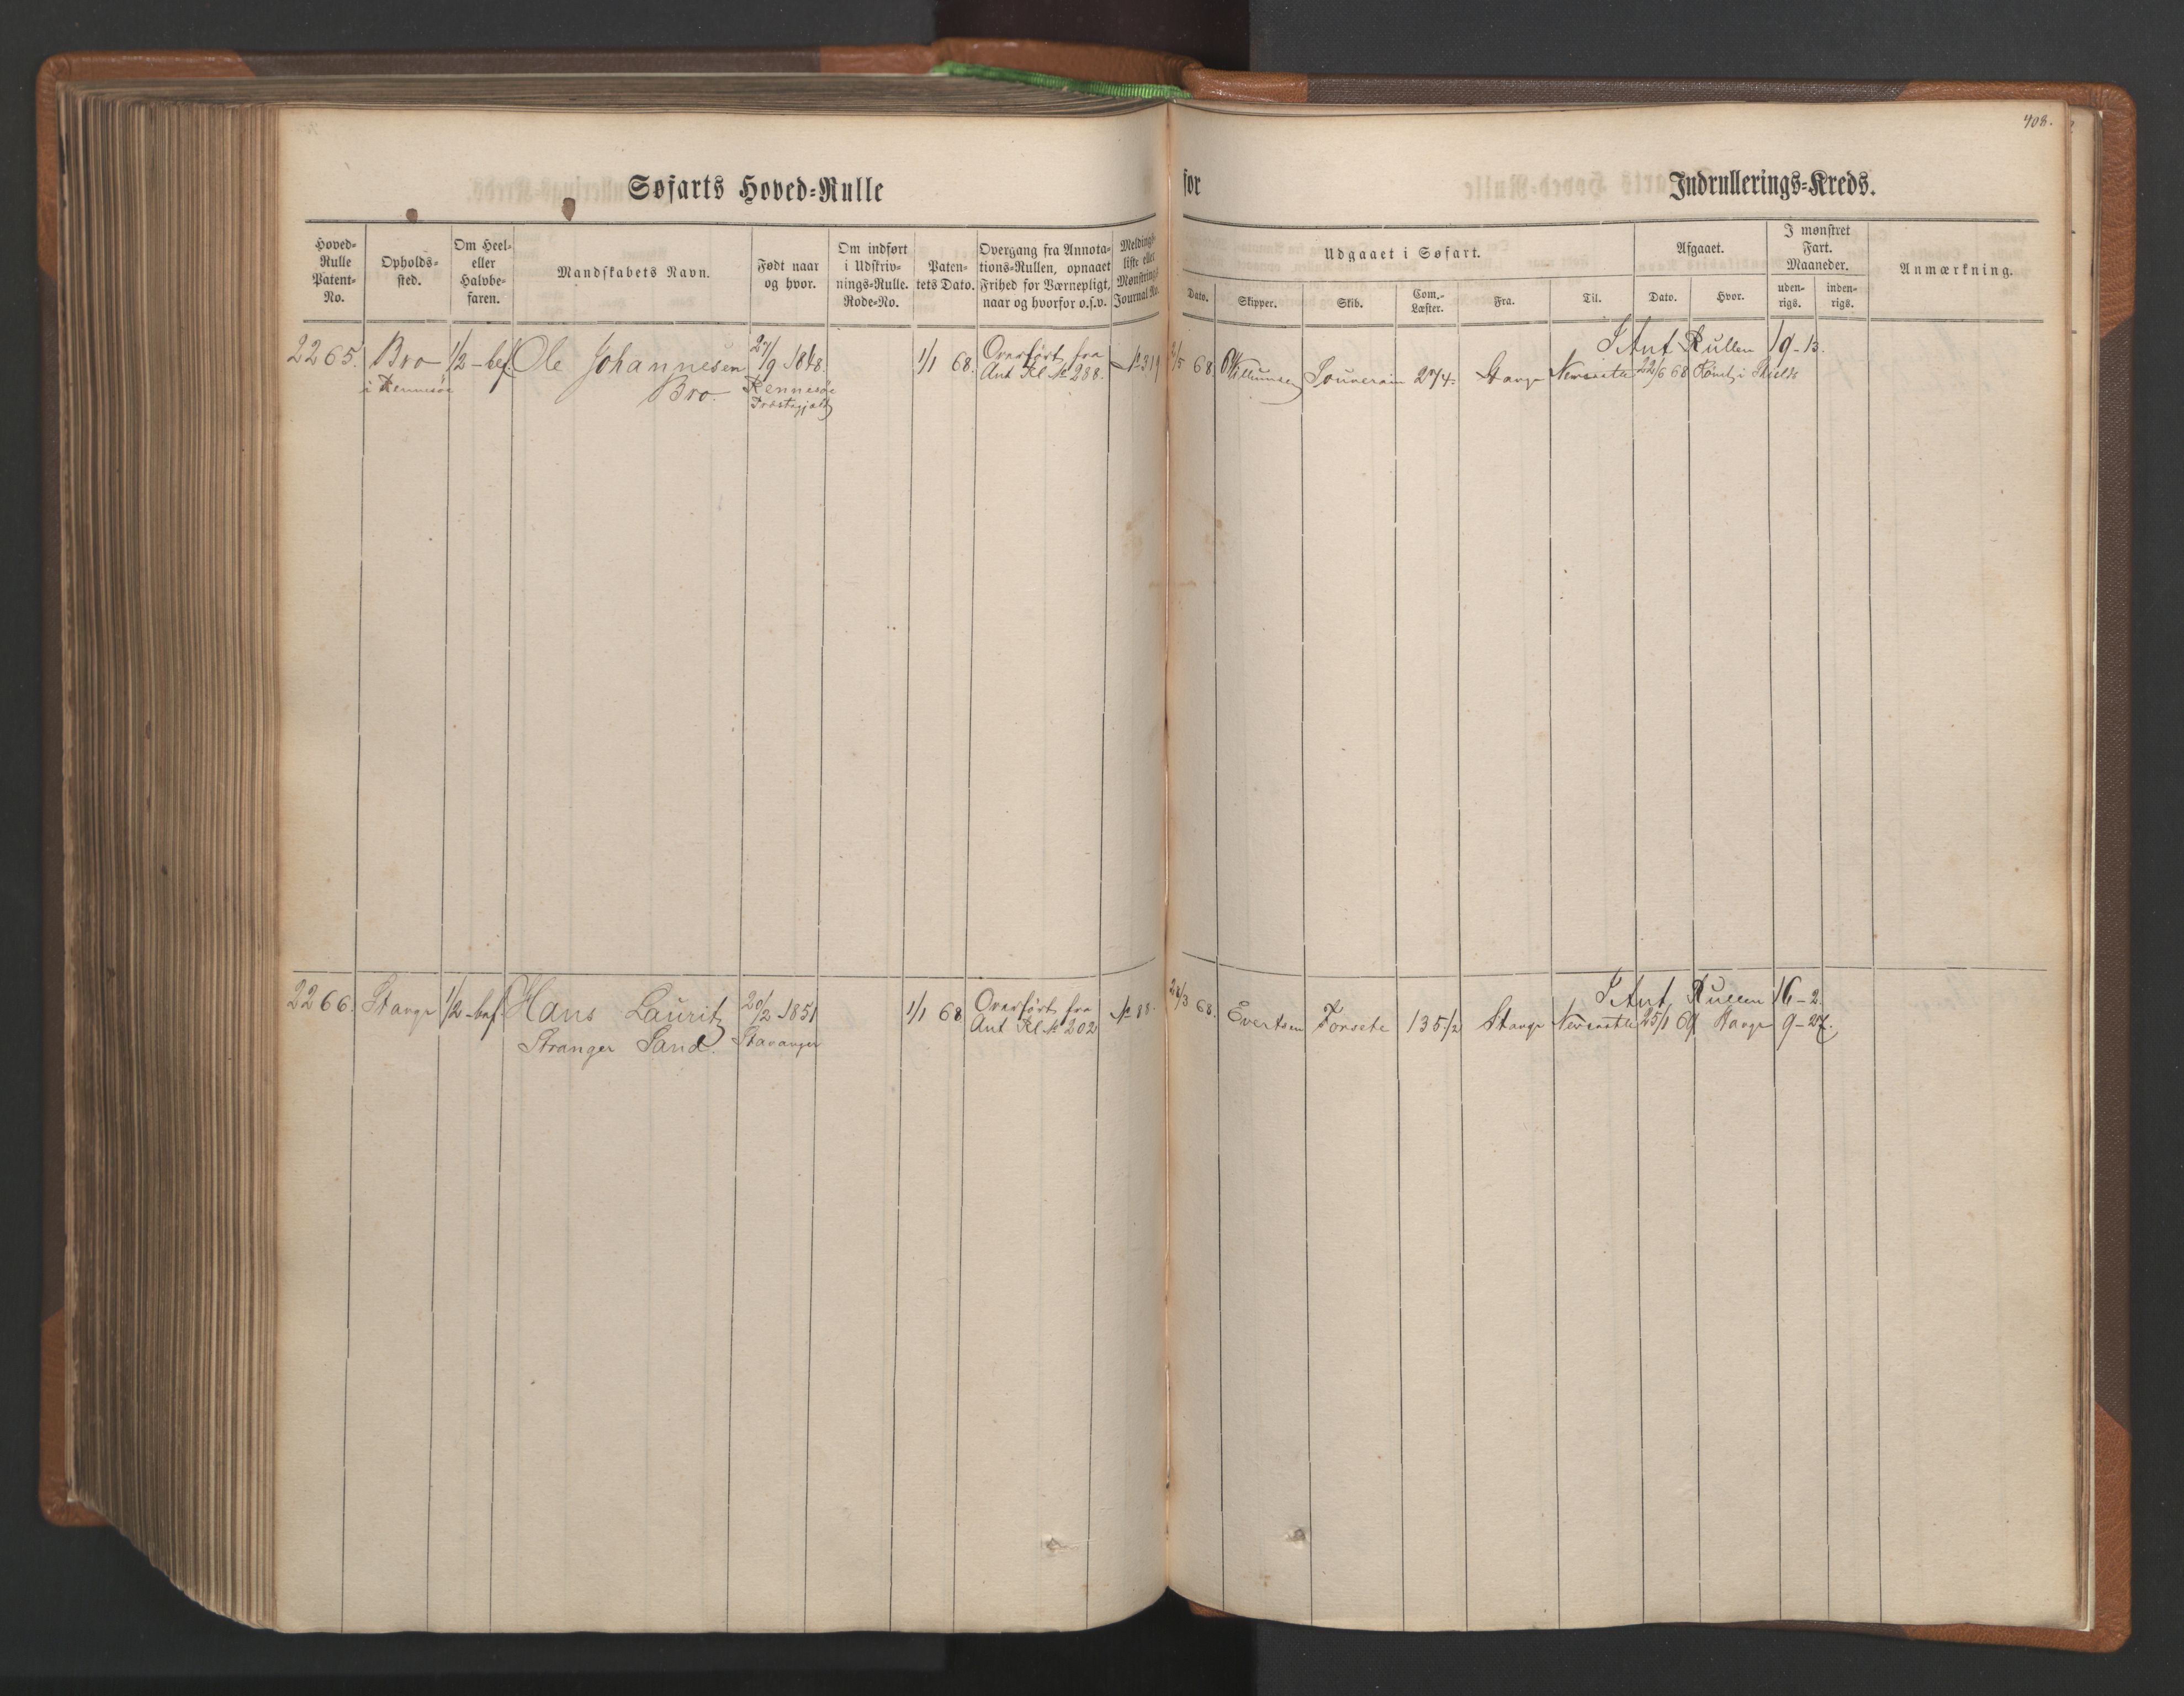 408.
Søfarts Hoved-Rulle
for
Indrullerings-Kreds.
Hoved-Rulle Patent-No.
Opholds-sted.
Om Heel- eller Halvbe-faren.
Mandskabets Navn.
Født naar og hvor.
Om indført i Udskriv-nings-Rulle. Rode-No.
Paten-tets Dato.
Overgang fra Annota-tions-Rullen, opnaaet Frihed for Værnepligt, naar og hvorfor o.s.v.
Meldings-liste eller Mønstrings-Journal No.
Udgaaet i Søfart.
Dato.
Skipper.
Skib.
Com.-Læster.
Fra.
Til.
Afgaaet.
Dato.
Hvor.
I mønstret Fart. Maaneder.
uden-rigs.
inden-rigs.
Anmærkning.
I Ant Rullen 19-13.
2265. Bro 1/2-bef. Ole Johannesen 27/9 1848. 1/1 68. Overført fra № 319 2/5 68 Souverain 274. Stavgr Newcastle 22/6 68 Rømt i Shields
i Rennesøe Bro. Rennesøe Ant Rl № 288.
Præstegjæld
I Ant Rullen 16-2.
2266. Stavgr 1/2-bef. Hans Lauritz 20/2 1851 1/1 68 Overført fra № 88. 24/3 68. Evertsen Forsete 135 1/2 Stavgr Newcastle 25/1 69 Stavgr 9-27.
Stranger Sand. Stavanger Ant Rl № 202